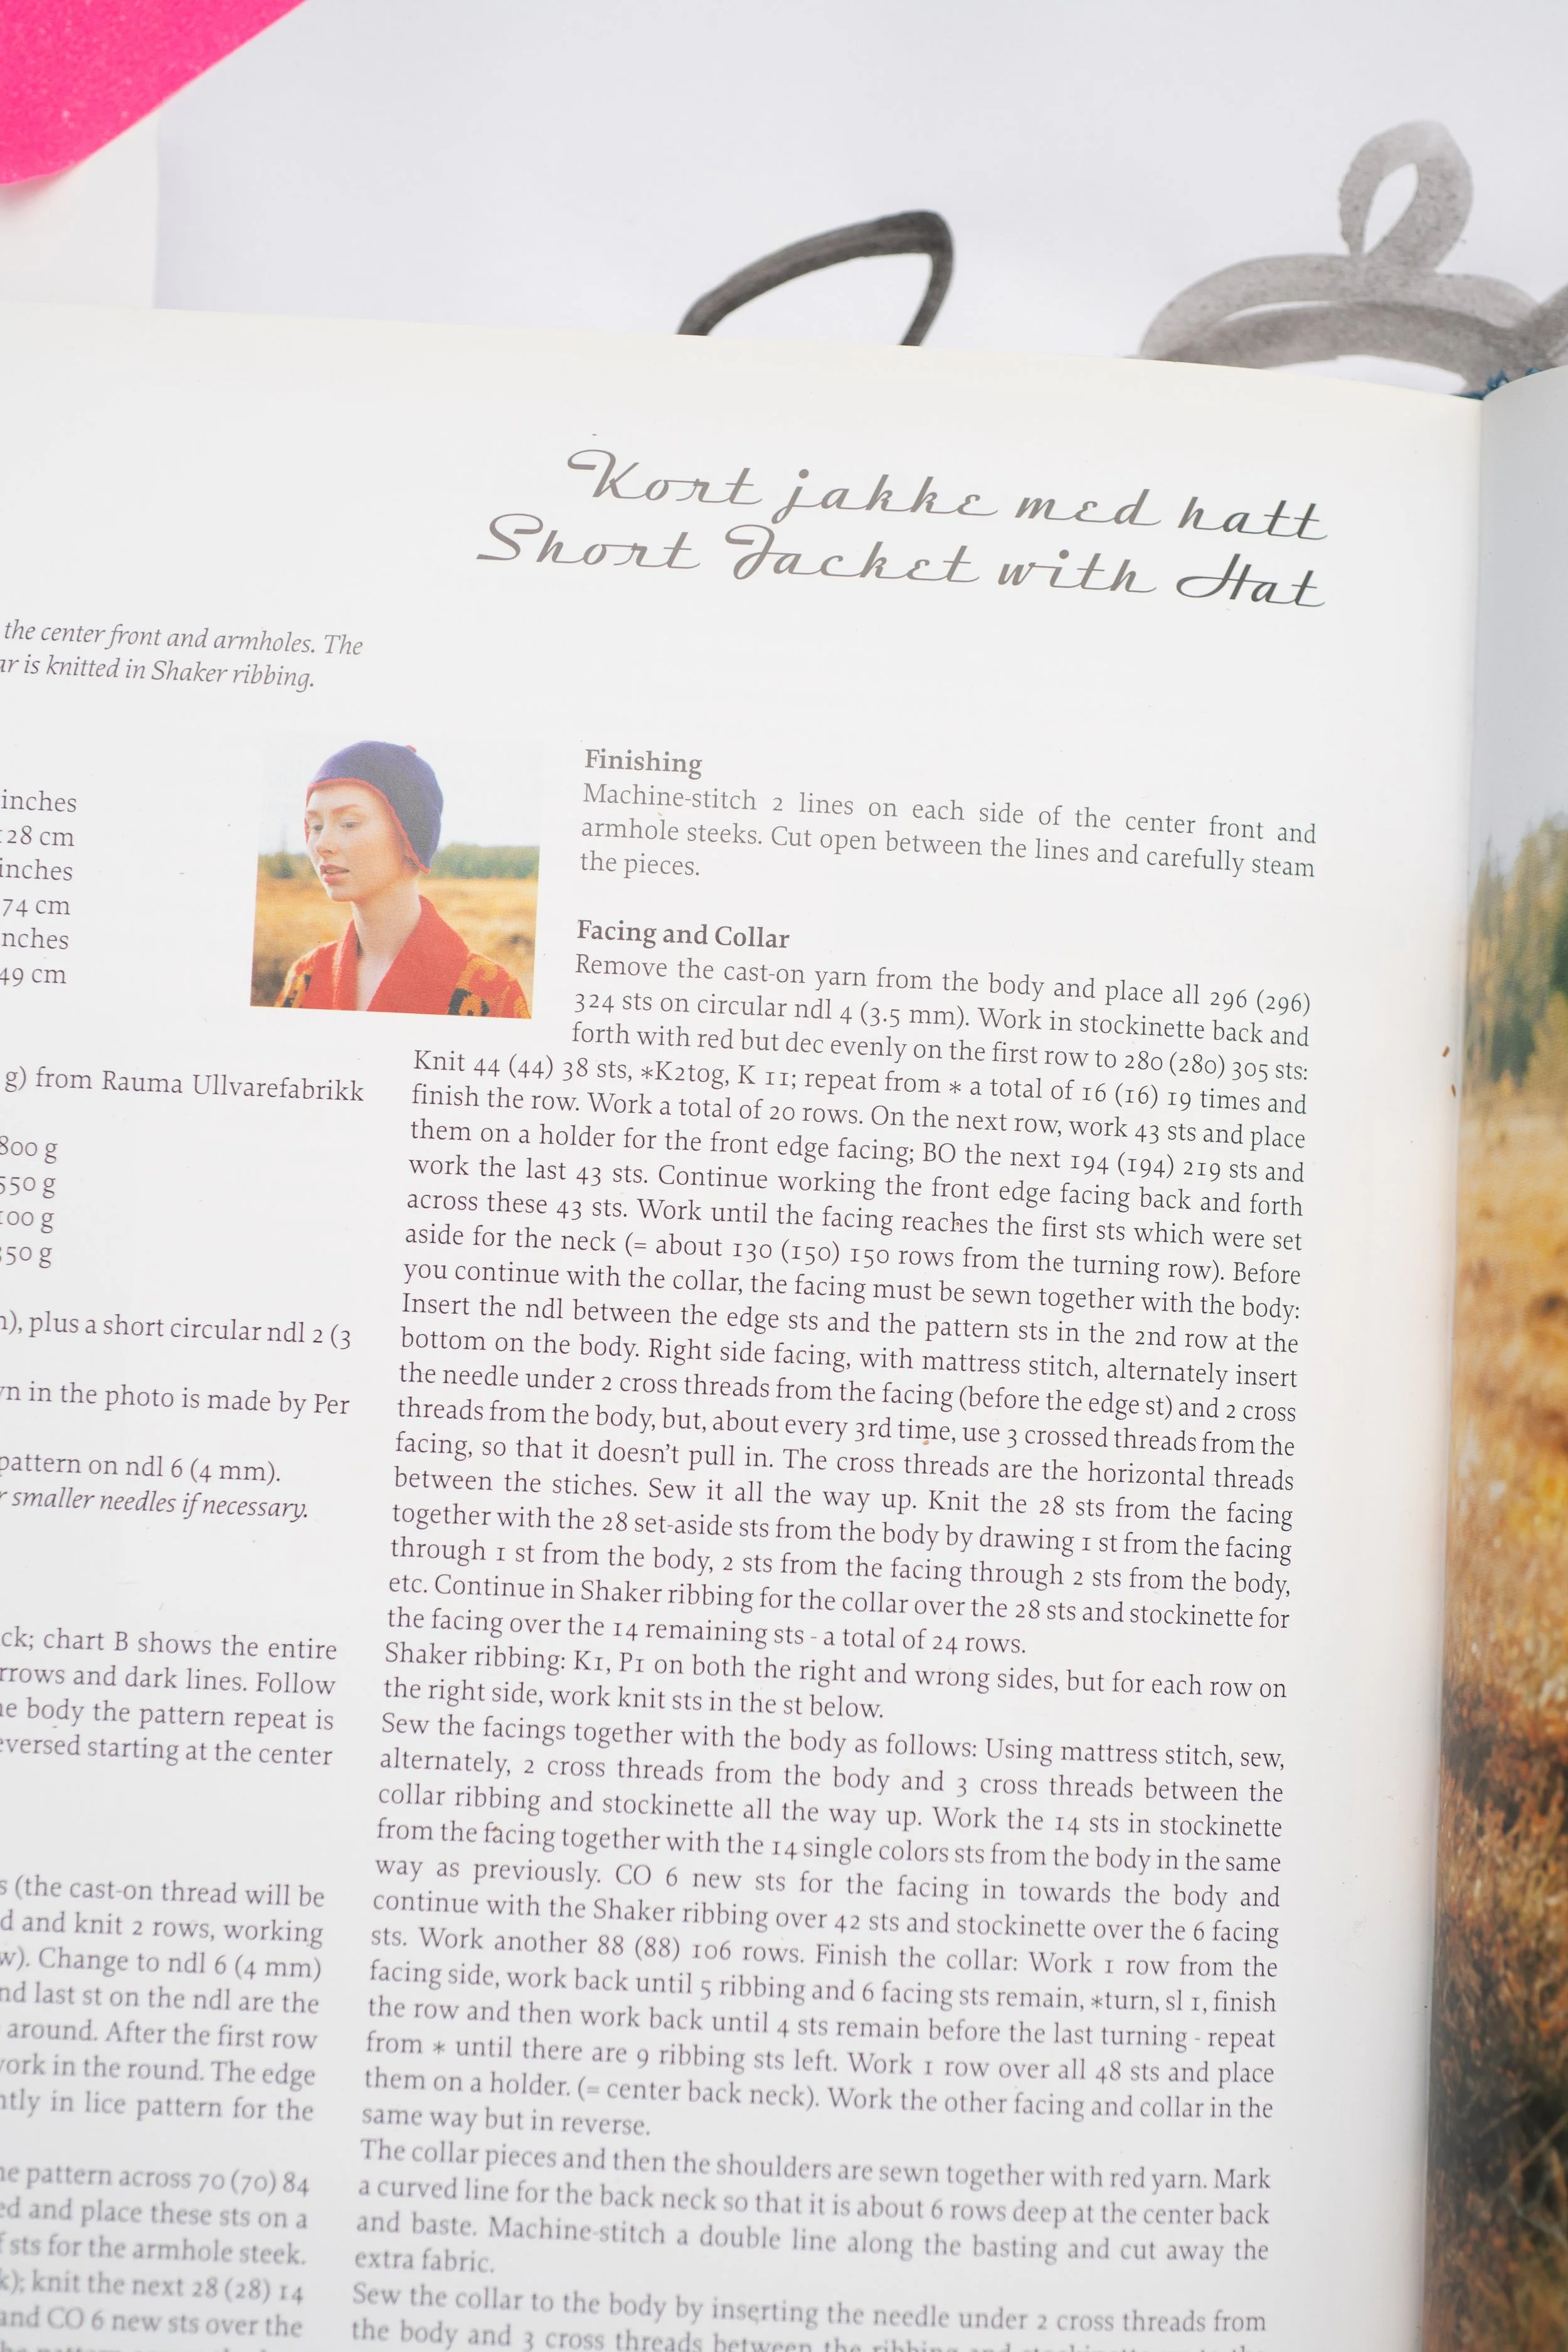 Kort jakke med hatt
Short Jacket with Hat
the center front and armholes. The
is knitted in Shaker ribbing.
inches
28 cm
inches
74 cm
49 cm
g) from Rauma Ullvarefabrikk
800 g
550 g
100 g
50 g
plus a short circular ndl 2 (3
in the photo is made by Per
pattern on ndl 6 (4 mm).
smaller needles if necessary.
chart B shows the entire
and dark lines. Follow
body the pattern repeat is
starting at the center
(the cast-on thread will be
and knit 2 rows, working
Change to ndl 6 (4 mm)
last st on the ndl are the
around. After the first row
work in the round. The edge
in lice pattern for the
pattern across 70 (70) 84
and place these sts on a
sts for the armhole steek.
knit the next 28 (28) 14
and CO 6 new sts over the
Finishing
Machine-stitch 2 lines on each side of the center front and
armhole steeks. Cut open between the lines and carefully steam
the pieces.
Facing and Collar
Remove the cast-on yarn from the body and place all 296 (296)
324 sts on circular ndl 4 (3.5 mm). Work in stockinette back and
forth with red but dec evenly on the first row to 280 (280) 305 sts:
Knit 44 (44) 38 sts, *K2tog, K 11; repeat from * a total of 16 (16) 19 times and
finish the row. Work a total of 20 rows. On the next row, work 43 sts and place
them on a holder for the front edge facing; BO the next 194 (194) 219 sts and
work the last 43 sts. Continue working the front edge facing back and forth
across these 43 sts. Work until the facing reaches the first sts which were set
aside for the neck (= about 130 (150) 150 rows from the turning row). Before
you continue with the collar, the facing must be sewn together with the body:
Insert the ndl between the edge sts and the pattern sts in the 2nd row at the
bottom on the body. Right side facing, with mattress stitch, alternately insert
the needle under 2 cross threads from the facing (before the edge st) and 2 cross
threads from the body, but, about every 3rd time, use 3 crossed threads from the
facing, so that it doesn't pull in. The cross threads are the horizontal threads
between the stiches. Sew it all the way up. Knit the 28 sts from the facing
together with the 28 set-aside sts from the body by drawing 1 st from the facing
through 1 st from the body, 2 sts from the facing through 2 sts from the body,
etc. Continue in Shaker ribbing for the collar over the 28 sts and stockinette for
the facing over the 14 remaining sts - a total of 24 rows.
Shaker ribbing: K1, P1 on both the right and wrong sides, but for each row on
the right side, work knit sts in the st below.
Sew the facings together with the body as follows: Using mattress stitch, sew,
alternately, 2 cross threads from the body and 3 cross threads between the
collar ribbing and stockinette all the way up. Work the 14 sts in stockinette
from the facing together with the 14 single colors sts from the body in the same
way as previously. CO 6 new sts for the facing in towards the body and
continue with the Shaker ribbing over 42 sts and stockinette over the 6 facing
sts. Work another 88 (88) 106 rows. Finish the collar: Work 1 row from the
facing side, work back until 5 ribbing and 6 facing sts remain, *turn, sl 1, finish
the row and then work back until 4 sts remain before the last turning - repeat
from * until there are 9 ribbing sts left. Work 1 row over all 48 sts and place
them on a holder. (= center back neck). Work the other facing and collar in the
same way but in reverse.
The collar pieces and then the shoulders are sewn together with red yarn. Mark
a curved line for the back neck so that it is about 6 rows deep at the center back
and baste. Machine-stitch a double line along the basting and cut away the
extra fabric.
Sew the collar to the body by inserting the needle under 2 cross threads from
the body and 3 cross threads between the ribbing and